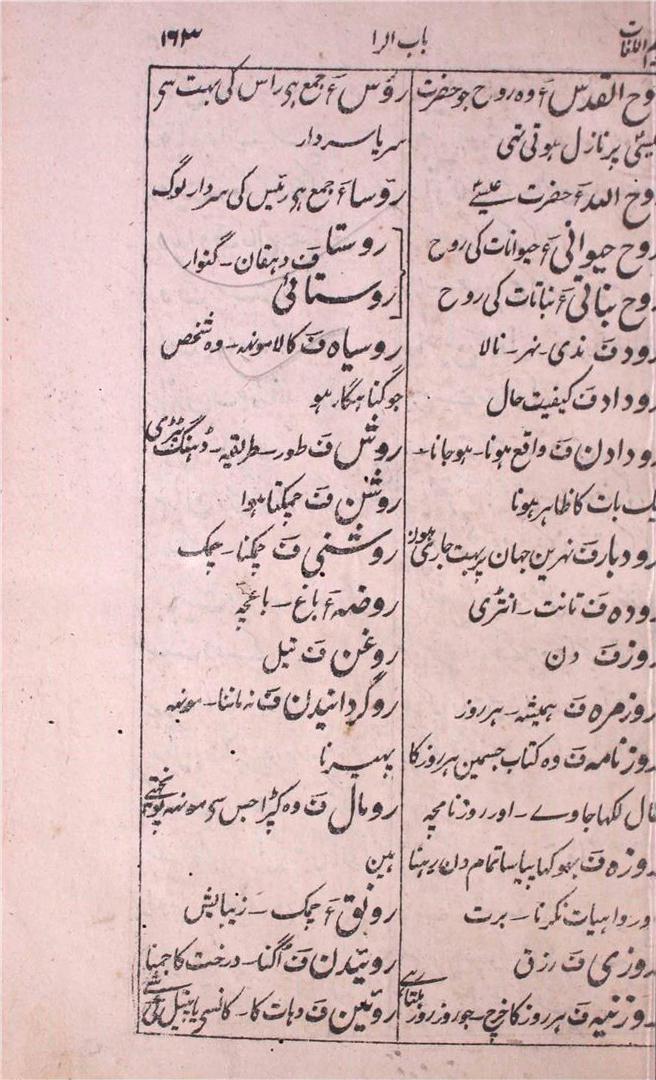 باب الرا
۱۶۳
روح القدس ع وہ روح جو حضرت
عیسیٰ پر نازل ہوتی تہی
روح اللہ ع حضرت عیسےٰ
روح حیوانی ع حیوانات کی روح
روح نباتی ع نباتات کی روح
رود ف ندی۔ نہر۔ نالا
روداد ف کیفیت حال
رودادن ف واقع ہونا۔ ہوجانا۔
یک بات کا ظاہر ہونا
رودبار ف نہرین جہان پر بہت جاری ہون
رودہ ف تانت۔ انتڑی
روز ف دن
روزمرہ ف ہمیشہ۔ ہر روز
روزنامہ ف وہ کتاب جسمین ہر روز کا
حال لکہا جاوے۔ اور روزنامچہ
روزہ ف بہوکہا پیاسا تمام دن رہنا
اور واہیات نکرنا۔ برت
روزی ف رزق
روزینہ ف ہر روز کا خرچ۔ جو روز روز ملتا رہے
رؤس ع جمع ہی راس کی بہت سی
سر یا سردار
روسا ع جمع ہی رئیس کی سردار لوگ
روستا ف دہقان۔ گنوار
روستائی
روسیاہ ف کالا مونہہ۔ وہ شخص
جو گناہگار ہو
روش ف طور۔ طریقہ۔ ڈہنگ پٹڑی
روشن ف چمکتا ہوا
روشنی ف چمکنا۔ چمک
روضہ ع باغ۔ باغچہ
روغن ف تیل
روگردانیدن ف نہ ماننا۔ مونہہ
پہیرنا
رومال ف وہ کپڑا جس سی مونہہ پونچہتے
ہین
رونق ع چمک۔ زیبایش
روئیدن ف اگنا۔ درخت کا جمنا
روئین ف دہات کا۔ کانسی یا پیتل کی